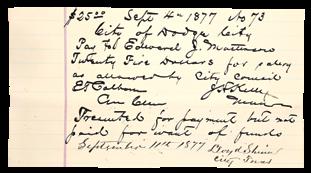 $25.00 Sept 4th 1877 No 73
City of Dodge City
Pay to Edward J. Masterson
Twenty Five Dollars for salary
as allowed by City Council
E F Colham J H Kelly
City Clerk Mayor
Presented for payment but not
paid for want of funds
September 11th 1877 Lloyd Shinn
City Treas